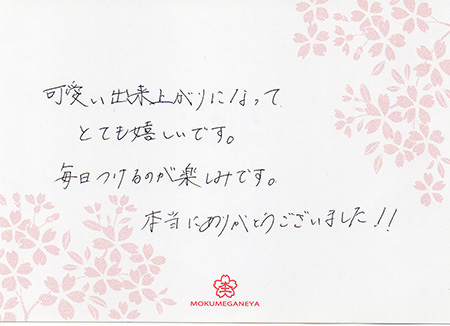 可愛い出来上がりになって
とても嬉しいです。
毎日つけるのが楽しみです。
本当にありがとうございました!!
杢
MOKUMEGANEYA